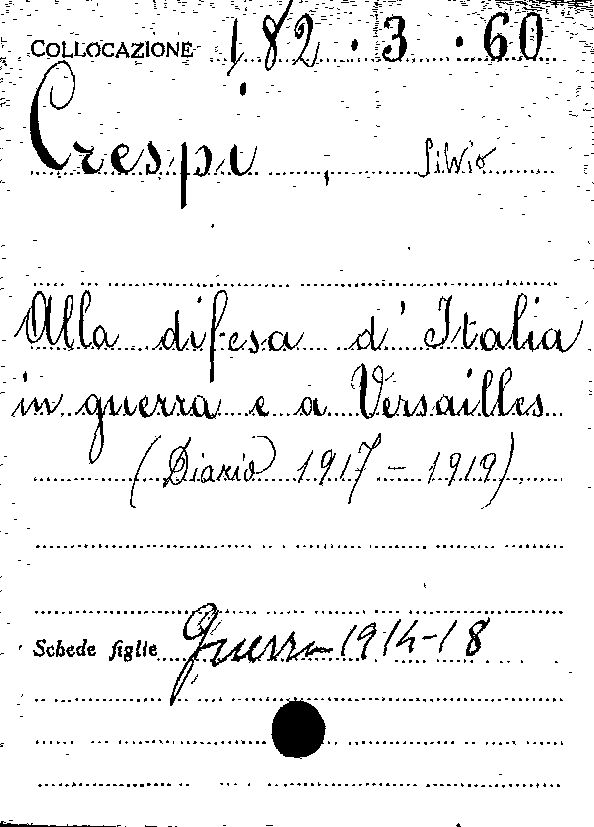 COLLOCAZIONE 182.3.60
Crespi, Silvio
Alla difesa d'Italia
in guerra e a Versailles
(Diario 1917-1919)
Schede figlie Guerra 1914-18